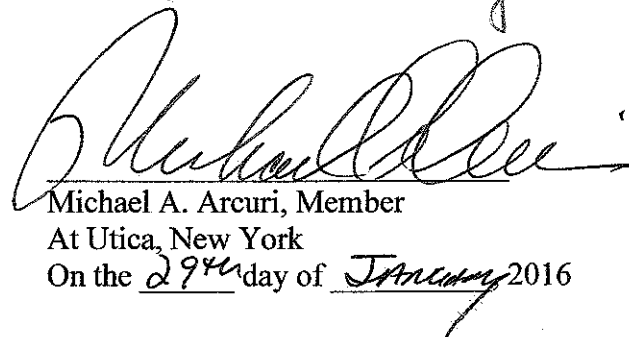 Michael A. Arcuri, Member
At Utica, New York
On the 29th day of January 2016